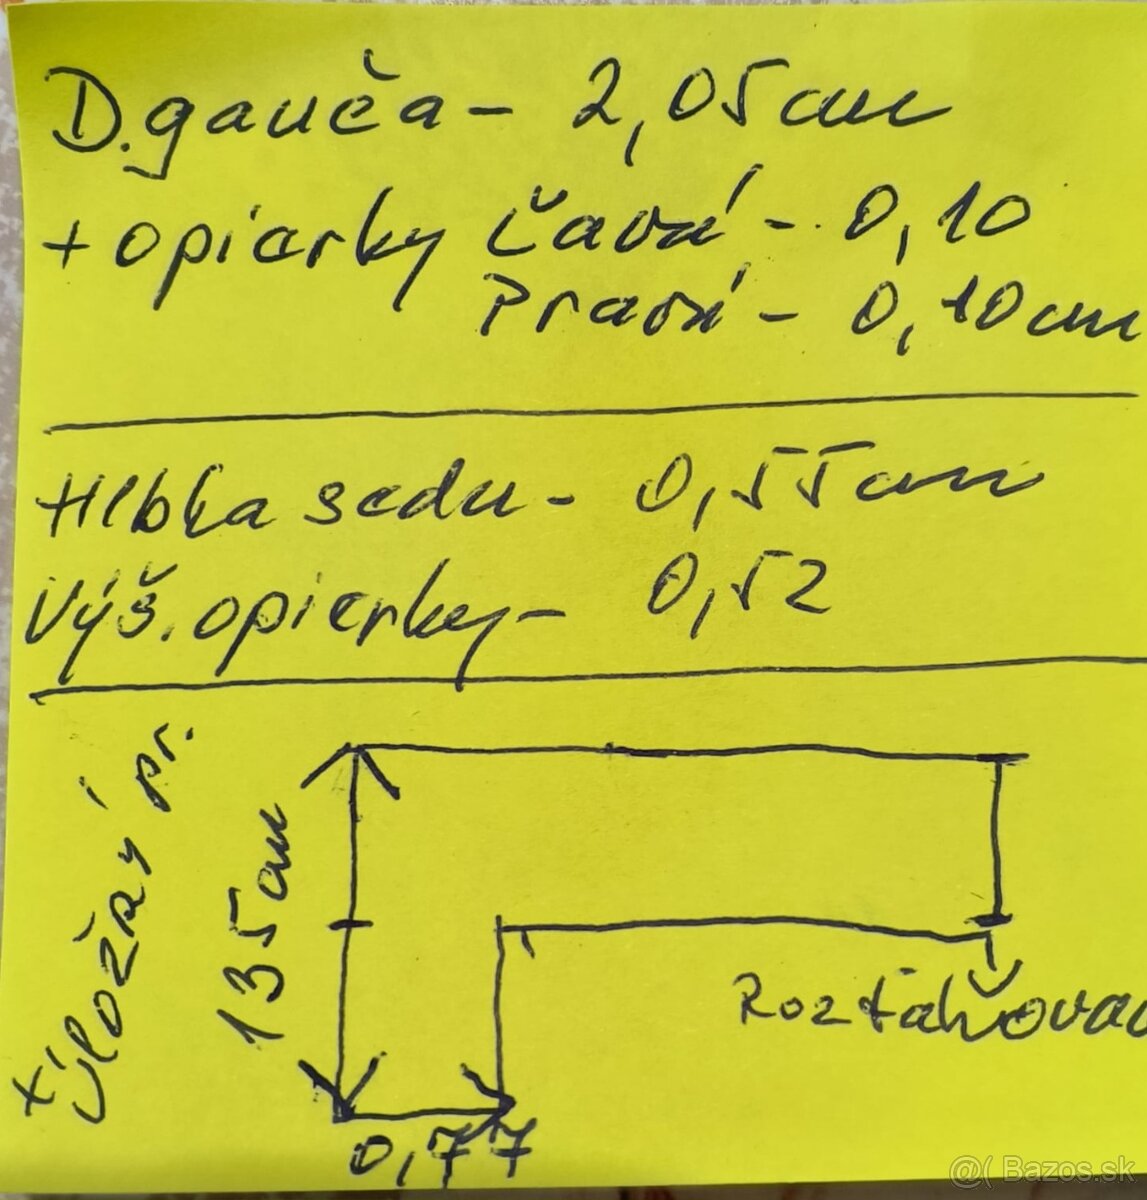 D. gauča - 2,05 cm
+ opierky Ľavá - 0,10
Pravá - 0,10 cm
Hĺbka sedu - 0,55 cm
Výš. opierky - 0,52
+ Úložný pr.
135 cm
Rozťahovac
0,77
@( Bazos.sk